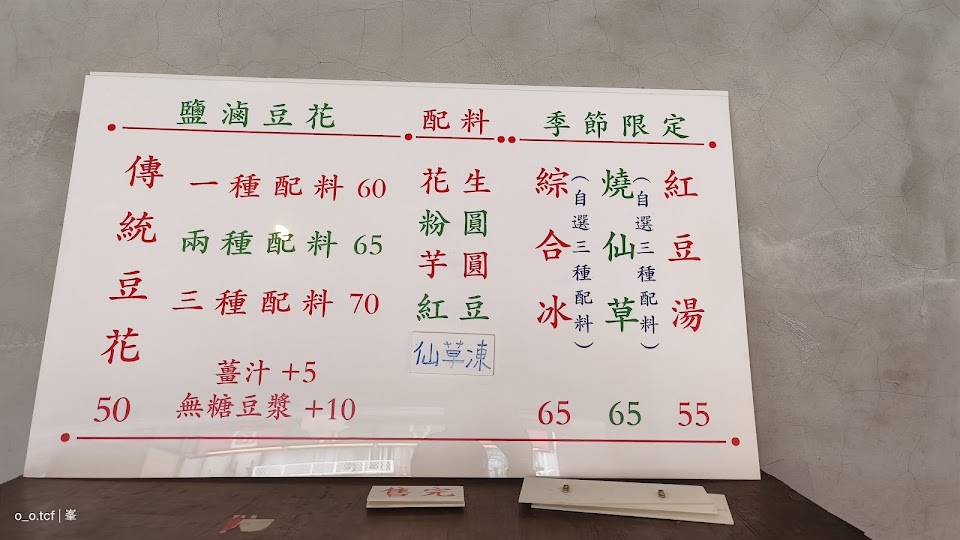 鹽滷豆花
傳統豆花
50
一種配料 60
兩種配料 65
三種配料 70
薑汁 +5
無糖豆漿 +10
配料
花生
粉圓
芋圓
紅豆
仙草凍
季節限定
綜合冰
(自選三種配料)
65
燒仙草
(自選三種配料)
65
紅豆湯
55
售完
o_o.tcf | 峯